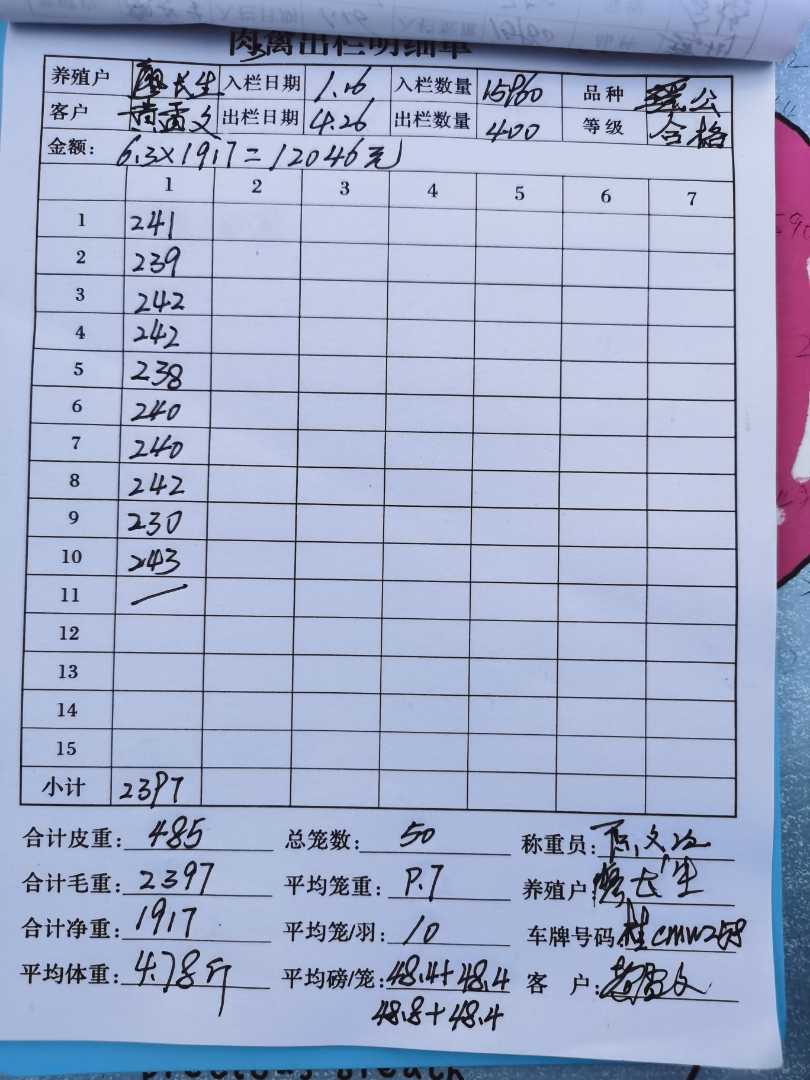 肉禽出栏明细单
养殖户 廖长生 入栏日期 1.16 入栏数量 15960 品种 公
客户 出栏日期 4.26 出栏数量 400 等级 合格
金额: 6.3×1917=12046元
1 2 3 4 5 6 7
1 241
2 239
3 242
4 242
5 238
6 240
7 240
8 242
9 230
10 243
11 —
12
13
14
15
小计 2397
合计皮重: 485 总笼数: 50 称重员:
合计毛重: 2397 平均笼重: 9.7 养殖户: 廖长生
合计净重: 1917 平均笼/羽: 10 车牌号码: 桂CMW258
平均体重: 4.78斤 平均磅/笼: 48.4+48.4 客 户:
48.8+48.4